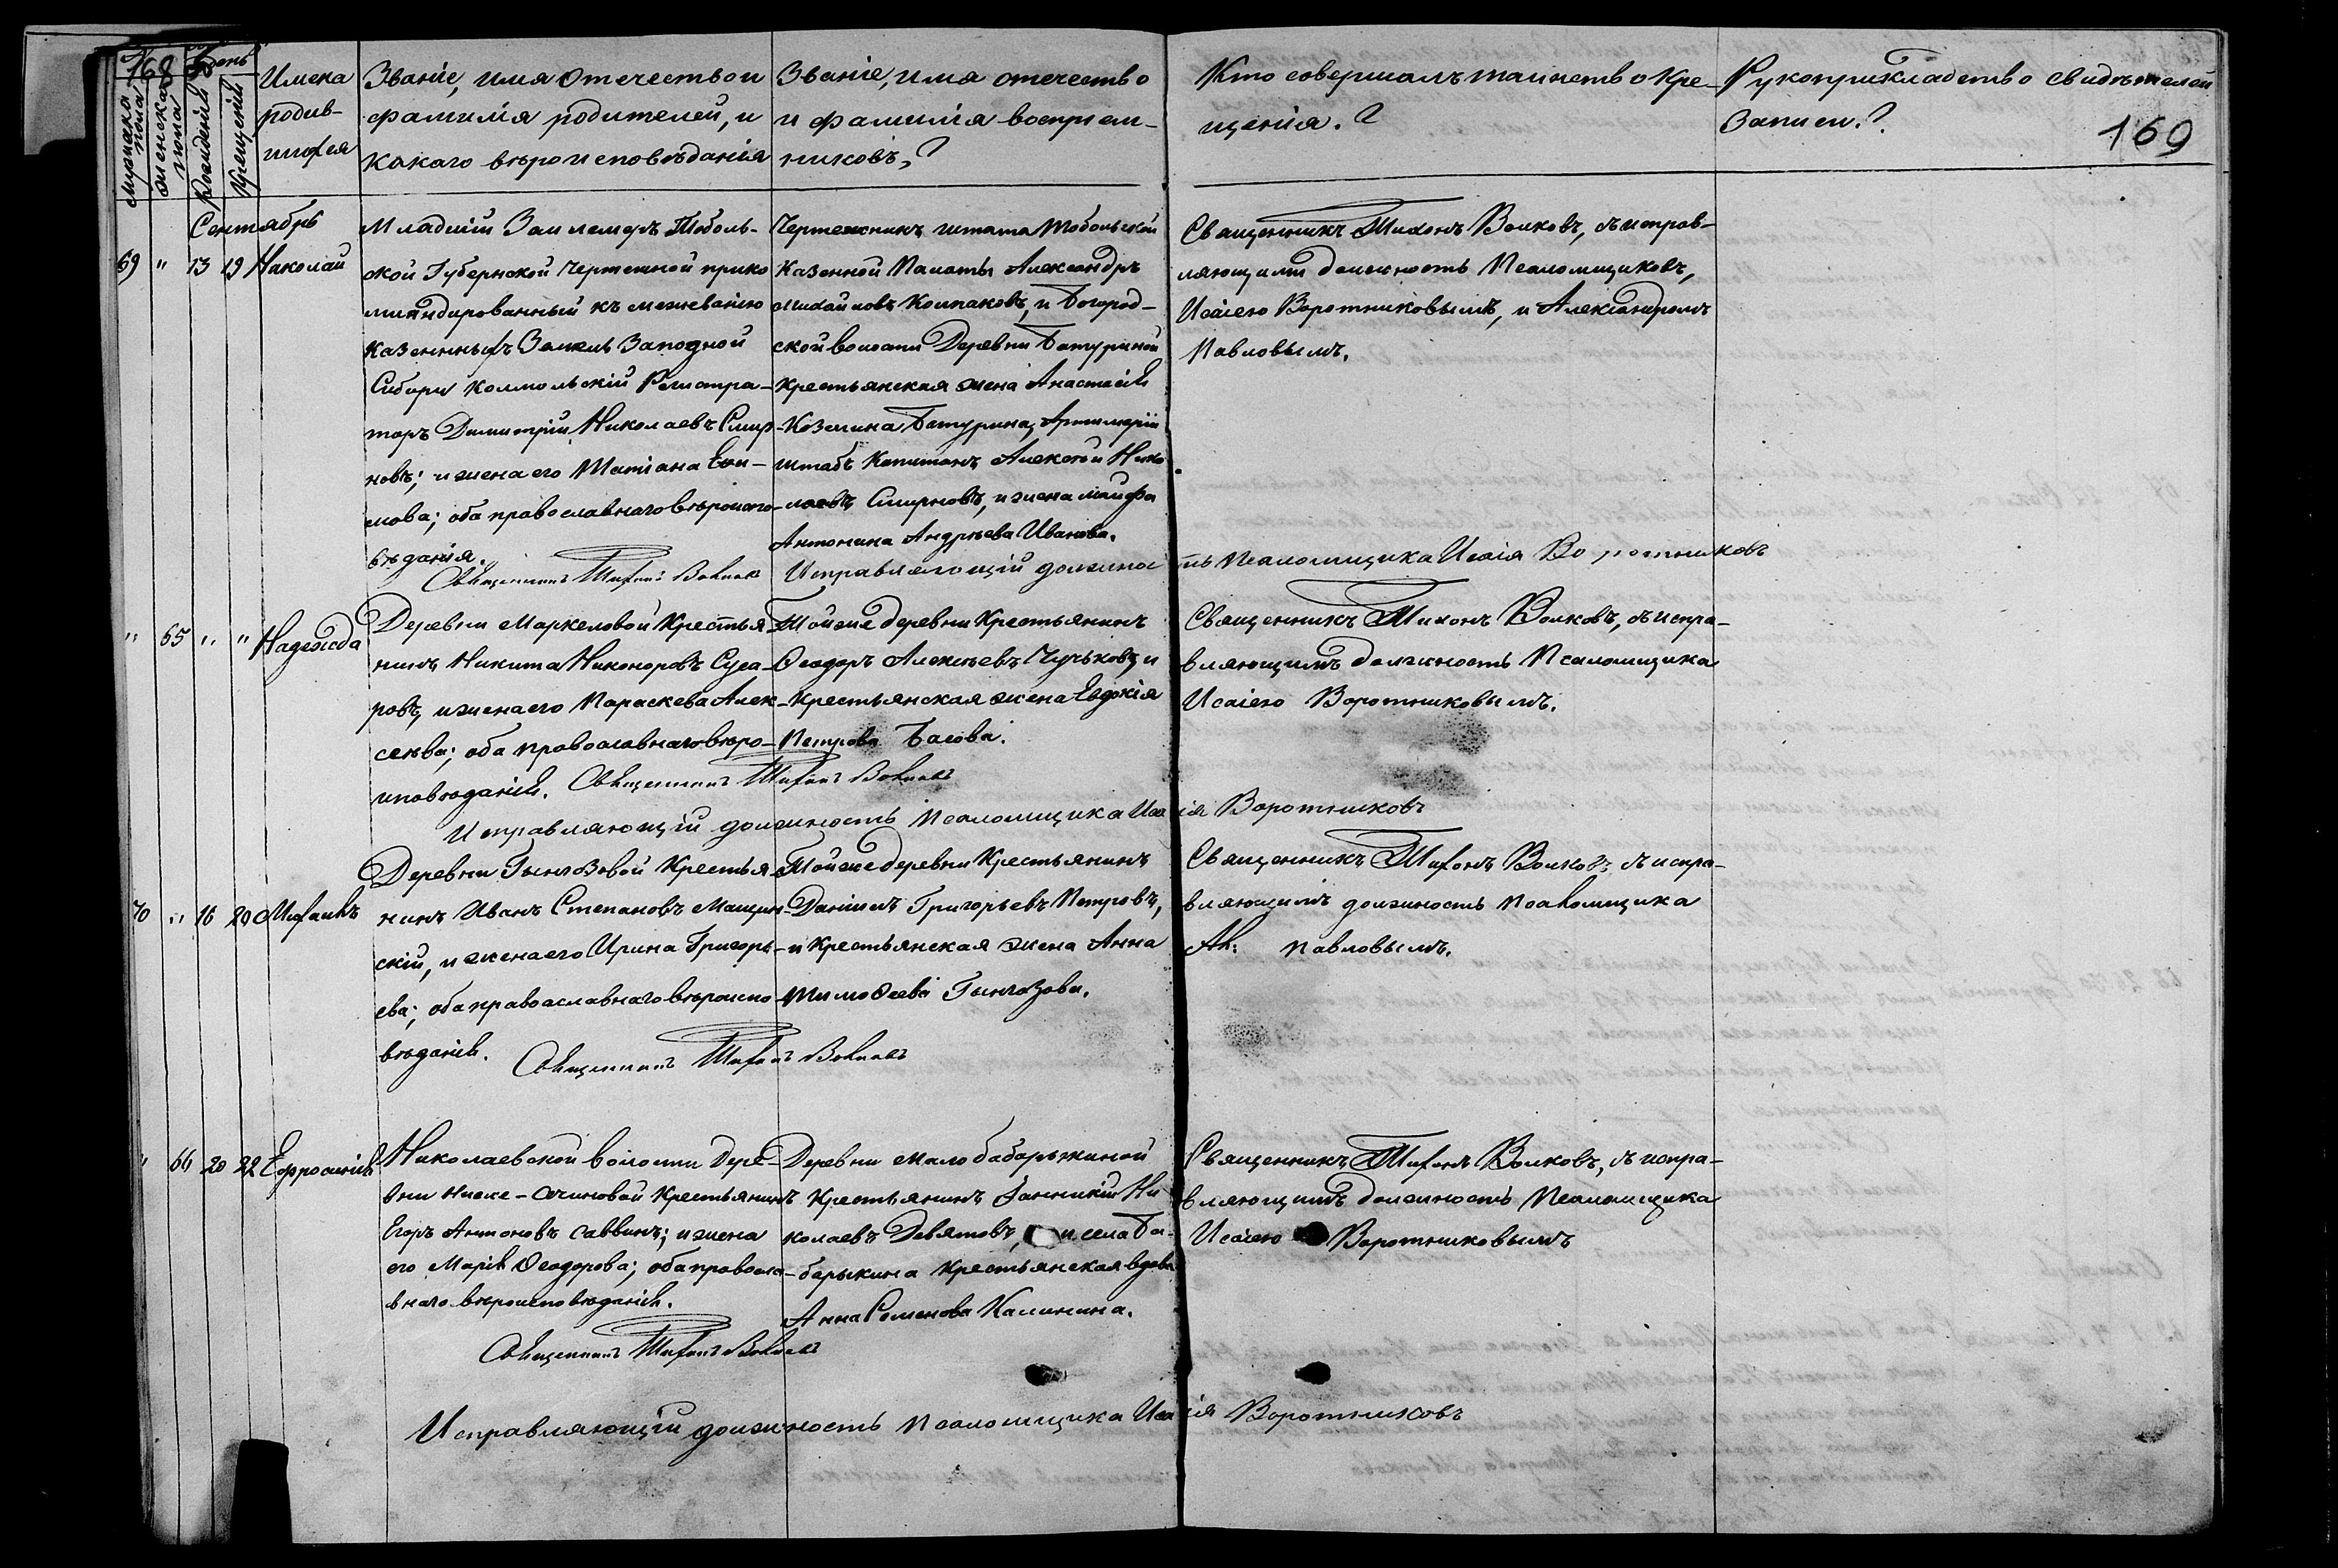 168
169
День
мужеска пола
женска пола
рожденія
Крещенія
Имена
родив-
шихся
Званіе, имя отечество и
фамилія родителей, и
какаго вѣроисповѣданія
Званіе, имя отечество
и фамилія воспріем-
никовъ?
Кто совершалъ таинство Кре-
щенія.?
Рукоприкладство свидѣтелей
Записи.?
Сентябрь
69 " 13 19 Николай
Младшій Землемеръ Тоболь-
ской Губернской Чертежной прико
мандированный къ межеванію
казенныхъ Земель Западной
Сибири Регистра-
торъ Димитрій Николаевъ Смир
новъ; и жена его Татіана
мова; оба православнаго вѣроиспо-
вѣданія.
Чертежникъ штата Тобольской
Казенной Палаты Александръ
Михайловъ Колпаковъ, и Богород-
ской волости Деревни Батуриной
крестьянская жена Анастасія
Козмина Батурина, Артилеріи
штабъ Капитанъ Алексѣй Нико
лаевъ Смирновъ, и жена
Антонина Андрѣева Иванова.
Священникъ Тихонъ Волковъ, съ исправ-
ляющими должность Псаломщиковъ,
Исаіею Воротниковымъ, и Александромъ
Павловымъ.
Священникъ Тихонъ Волковъ
Исправляющій должность Псаломщика Исаія Воротниковъ
" 65 " " Надежда
Деревни Маркеловой Крестья
нинъ Никита Никоноровъ Суса-
ровъ, и жена его Параскева Алек-
сеева; оба православнаго вѣро-
исповѣданія.
Тойже деревни Крестьянинъ
Ѳеодоръ Алексѣевъ Чучьковъ, и
Крестьянская жена Евдокія
Петрова Басова.
Священникъ Тихонъ Волковъ, съ испра-
вляющимъ должность Псаломщика
Исаіею Воротниковымъ.
Священникъ Тихонъ Волковъ
Исправляющій должность Псаломщика Исаія Воротниковъ
70 " 16 20 Михаилъ
Деревни Гынгазовой Крестья-
нинъ Иванъ Степановъ Мащин-
скій, и жена его Ирина Григорь-
ева; оба православнаго вѣроиспо
вѣданія.
Тойже деревни Крестьянинъ
Даніилъ Григорьевъ Петровъ,
и Крестьянская жена Анна
Тимоѳеева Гынгазова.
Священникъ Тихонъ Волковъ, съ испра-
вляющимъ должность Псаломщика
Ал: Павловымъ.
Священникъ Тихонъ Волковъ
" 66 20 22 Ефросинія
Николаевской волости Дере-
вни Ниже-Сечиновой Крестьянинъ
Егоръ Антоновъ Саввинъ; и жена
его Марія Ѳеодорова; оба правосла-
внаго вѣроисповѣданія.
Деревни Малобабарыкиной
Крестьянинъ Іанникій Ни
колаевъ Девятовъ, и села Ба-
барыкина Крестьянская вдова
Анна Семенова Калинина.
Священникъ Тихонъ Волковъ, съ испра-
вляющимъ должность Псаломщика
Исаіею Воротниковымъ
Священникъ Тихонъ Волковъ
Исправляющій должность Псаломщика Исаія Воротниковъ